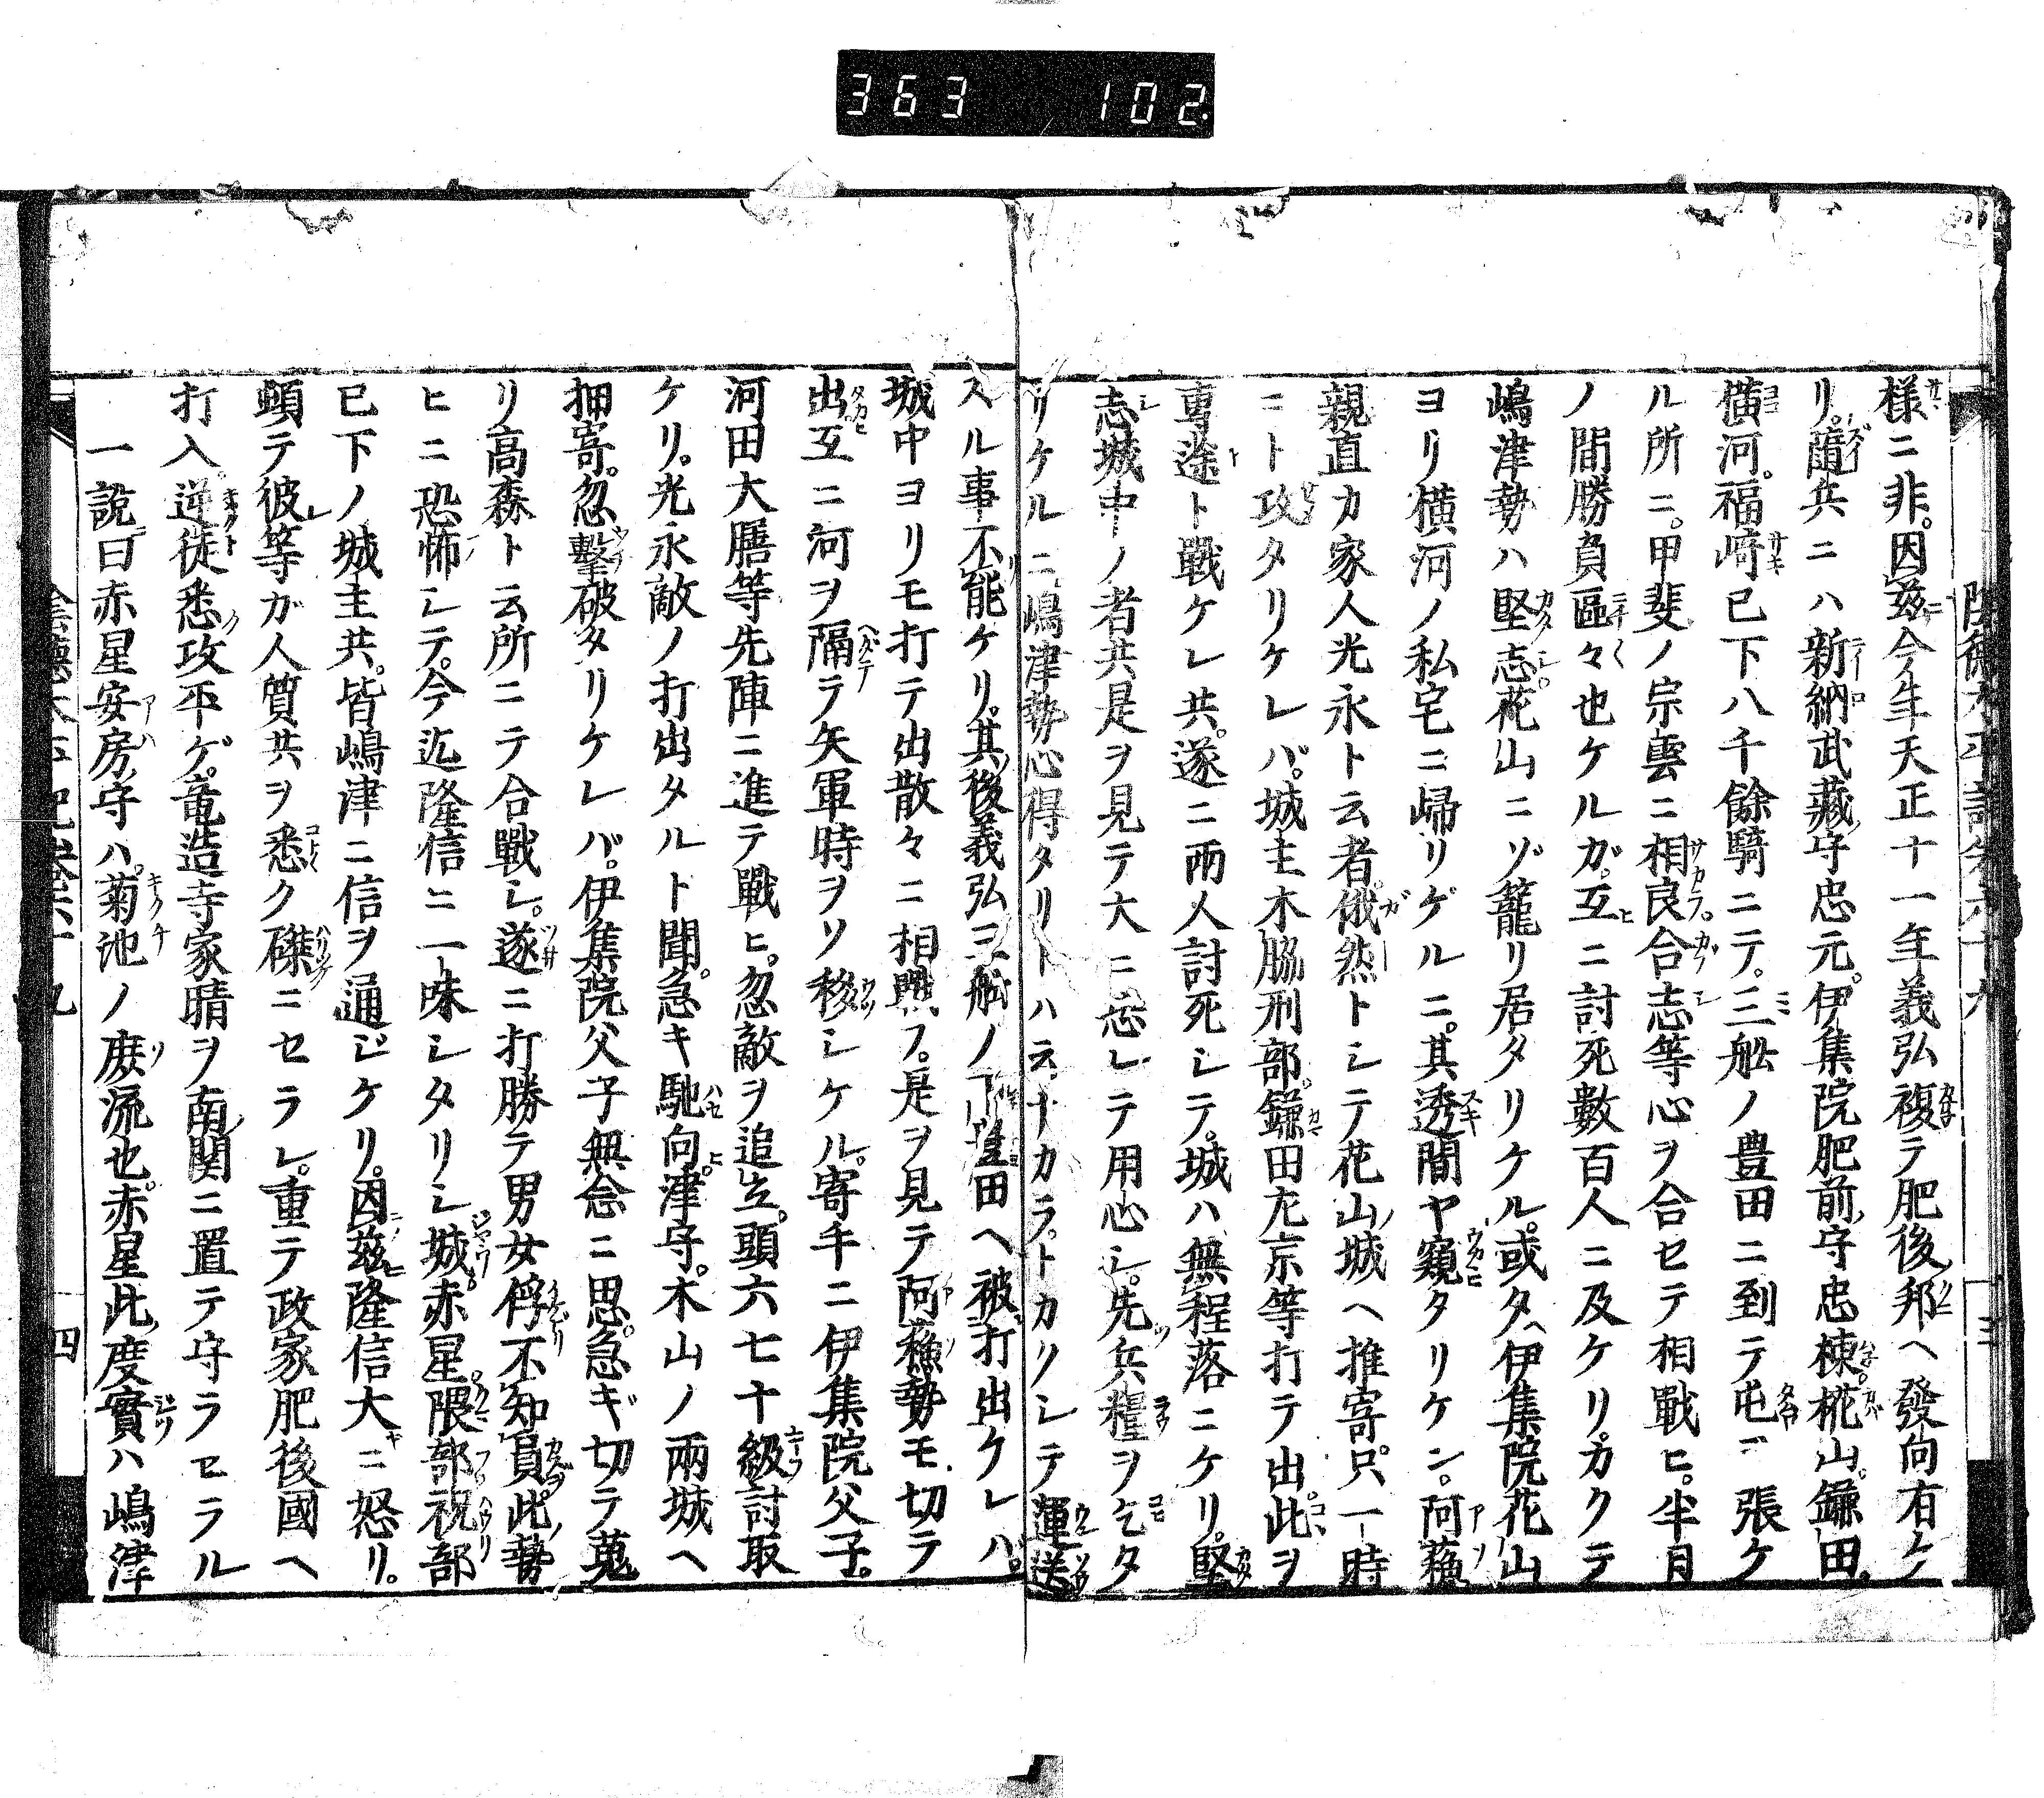 363 102
様ニ非。因茲今年天正十一年義弘複テ肥後ノ邦ヘ發向有ケ
リ。隨兵ニハ新納武藏守忠元。伊集院肥前ノ守忠棟。椛山。鎌田。
横河。福﨑已下八千餘騎ニテ。三舩ノ豊田ニ到テ屯ヲ張ケ
ル所ニ。甲斐ノ宗雲ニ相良。合志等心ヲ合セテ相戰ヒ。半月
ノ間勝負區々也ケルガ。互ニ討死數百人ニ及ケリ。カクテ
嶋津勢ハ堅志花山ニゾ籠リ居タリケル。或夕ヘ伊集院花山
ヨリ横河ノ私宅ニ歸リゲルニ。其透間ヤ窺タリケン。阿蘓
親直カ家人光永ト云者。俄然トシテ花山ノ城ヘ推寄。只一時
ニト攻タリケレバ。城主木脇刑部。鎌田左京等打テ出。此ヲ
専途ト戰ケレ共。遂ニ兩人討死シテ。城ハ無程落ニケリ。堅
志城中ノ者共是ヲ見テ大ニ忿レテ用心シ。先兵糧ヲ乞タ
リケルニ。嶋津勢心得タリトハ云ナカラ。トカクシテ運送
スル事不能ケリ。其後義弘三舩ノ豊田ヘ被打出ケレバ。
城中ヨリモ打テ出散々ニ相戰フ。是ヲ見テ阿蘓勢モ切テ
出互ニ河ヲ隔テ矢軍時ヲソ移シケル。寄手ニ伊集院父子。
河田大膳等先陣ニ進テ戰ヒ。忽敵ヲ追立。頭六七十級討取
ケリ。光永敵ノ打出タルト聞。急キ馳向。津守。木山ノ兩城ヘ
押寄。忽擊破タリケレバ。伊集院父子無念ニ思。急ギ切テ蒐
リ高森ト云所ニテ合戰シ。遂ニ打勝テ男女俘不知員。此ノ勢
ヒニ恐怖シテ。今迄隆信ニ一味シタリシ城。赤星。隈部。祝部
已下ノ城主共。皆嶋津ニ信ヲ通ジケリ。因茲隆信大ニ怒リ。
頓テ彼等ガ人質共ヲ悉ク磔ニセラレ。重テ政家肥後國ヘ
打入。逆徒悉攻平ゲ。竜造寺家晴ヲ南ノ関ニ置テ守ラセラル
一説曰赤星安房守ハ。菊池ノ庶流也。赤星此度實ハ嶋津
四